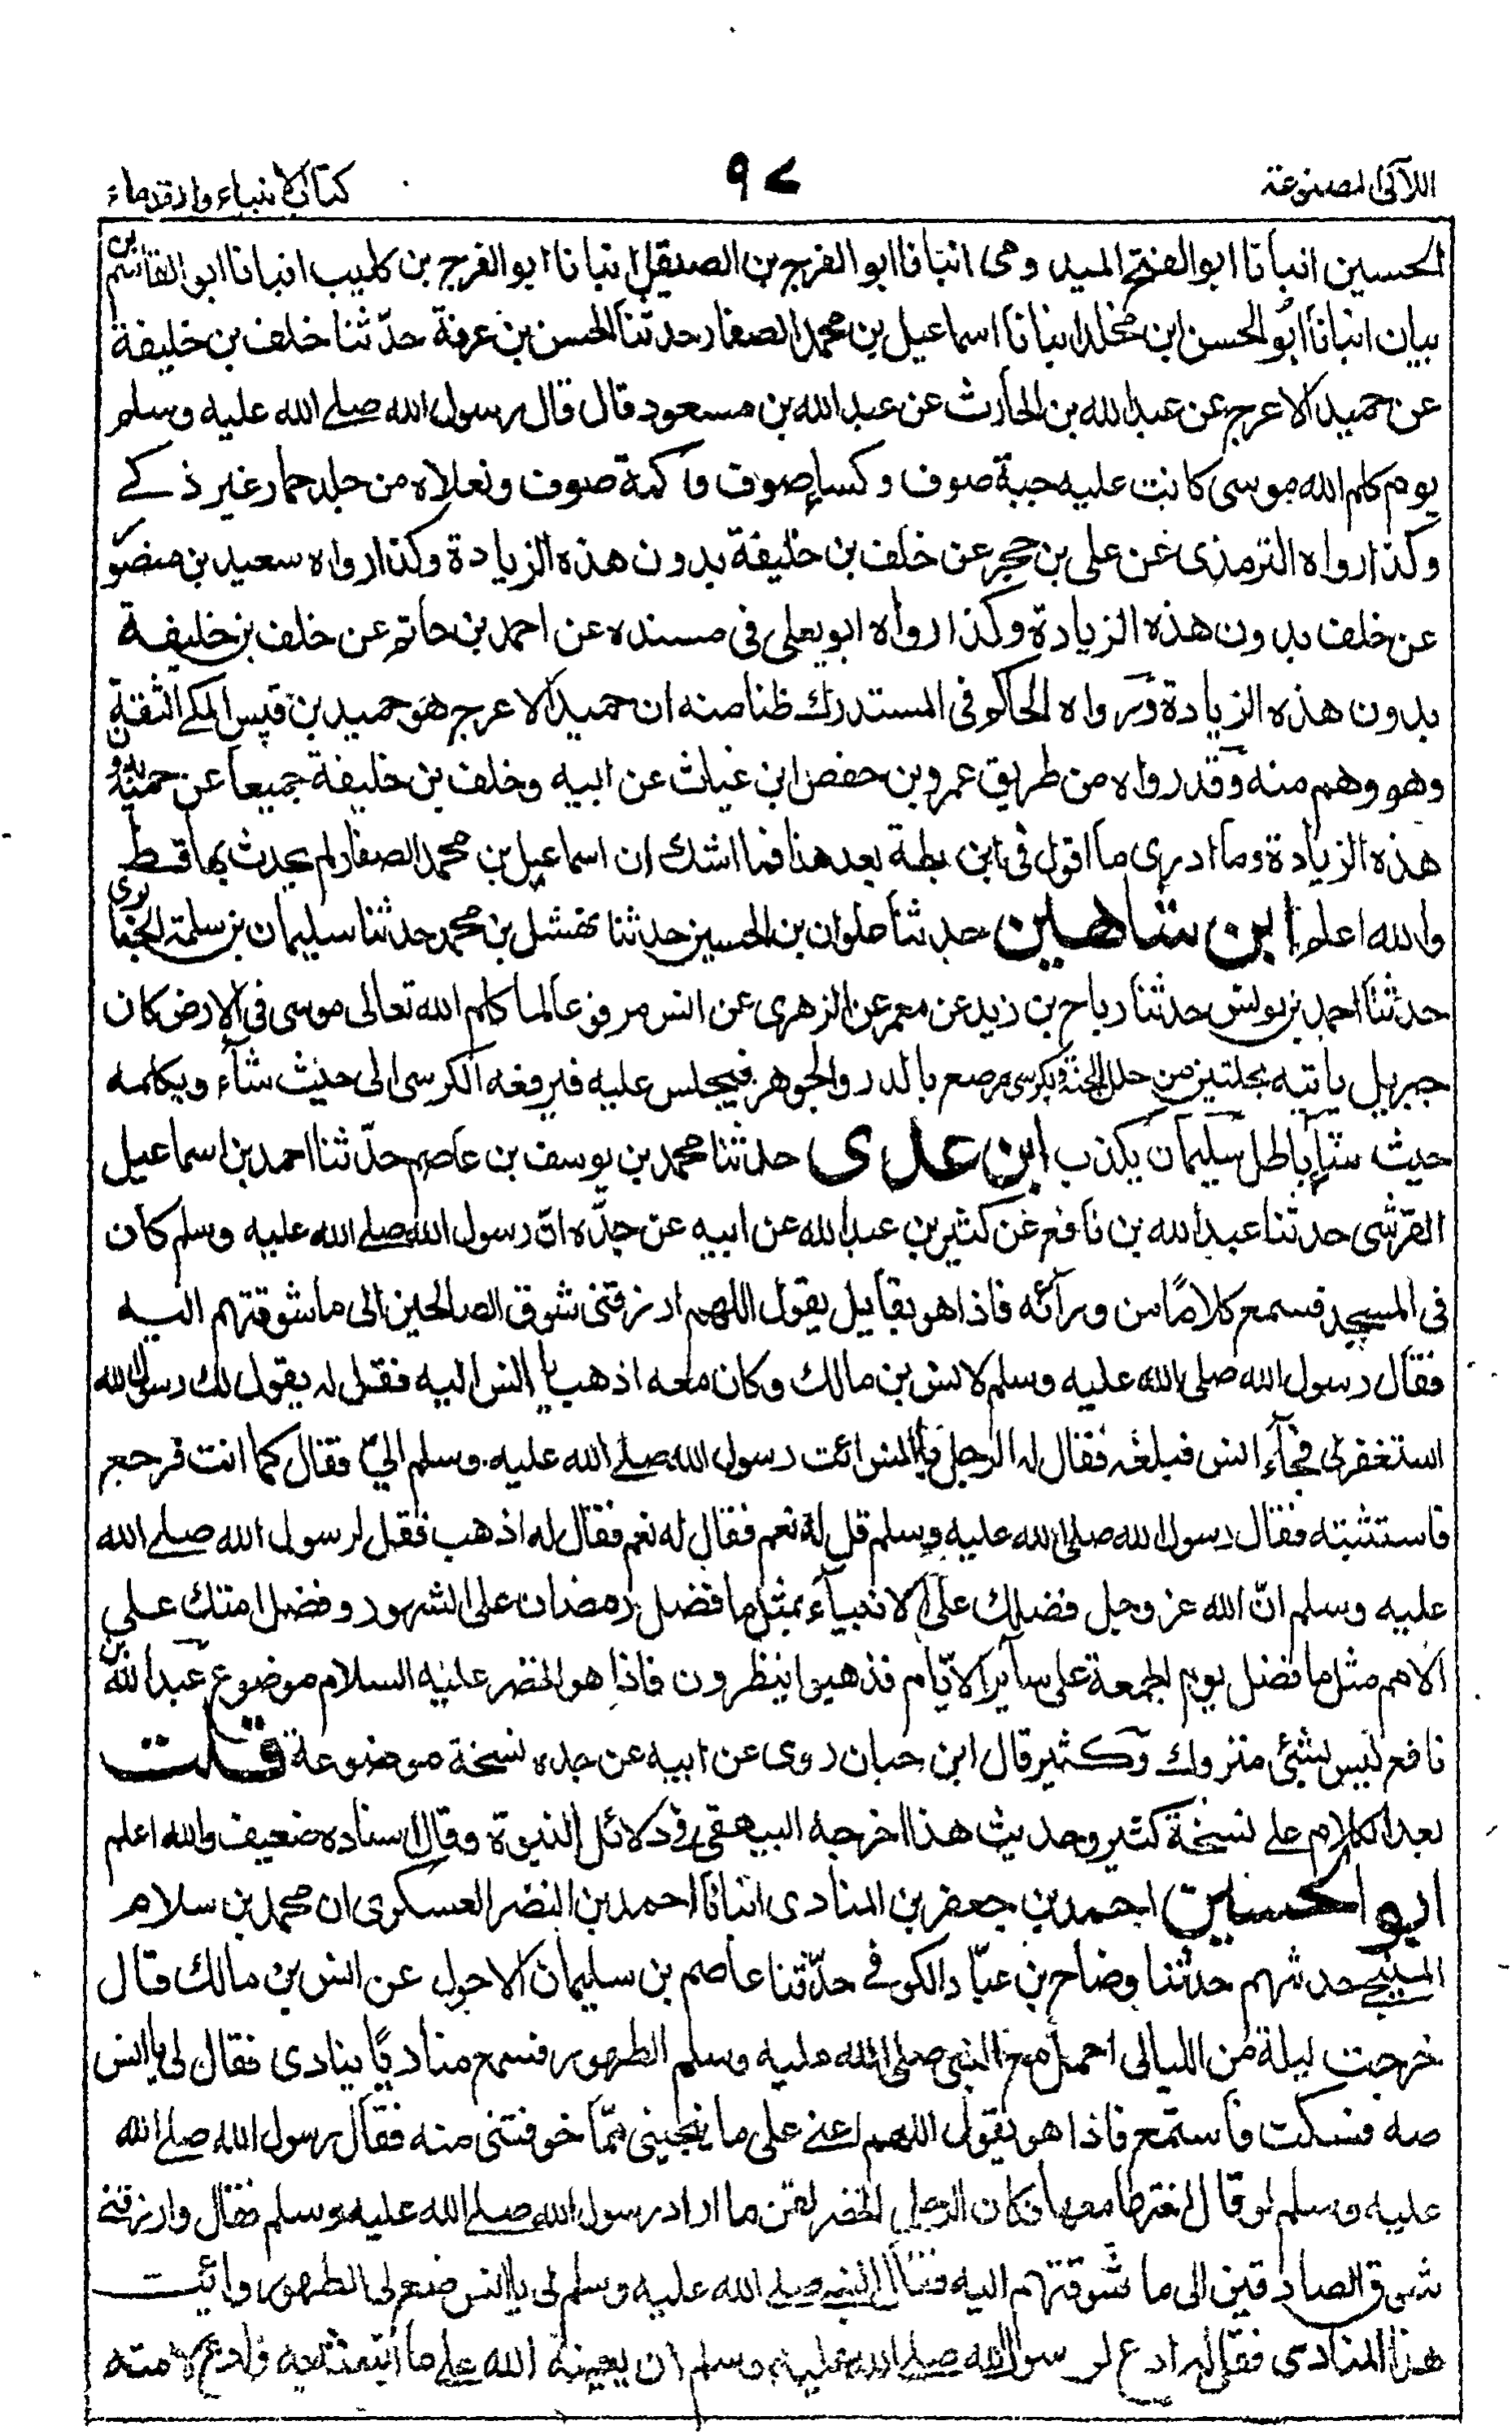 اللآلى المصنوعة
٩٧
كتاب الانبياء والقدماء
الحسين انبأنا ابو الفتح الميدومى انبأنا ابو الفرج بن الصيقل انبأنا ابو الفرج بن كليب انبانا ابو القاسم بن
بيان انبانا ابو الحسن ابن مخلد انبانا اسماعيل بن محمد الصفار حدثنا الحسن بن عرفة حدّثنا خلف بن خليفة
عن حميد الاعرج عن عبد الله بن الحارث عن عبد الله بن مسعود قال قال رسول الله صلے الله عليه وسلم
يوم كلم الله موسى كانت عليه جبة صوف وكساء صوف وكمة صوف ونعلاه من جلد حمار غير ذكے
وكذا رواه الترمذى عن على بن حجر عن خلف بن خليفة بدون هذه الزيادة وكذا رواه سعيد بن منصور
عن خلف بدون هذه الزيادة وكذا رواه ابو يعلى فى مسنده عن احمد بن حاتم عن خلف بن خليفة
بدون هذه الزيادة ورواه الحاكم فى المستدرك ظنا منه ان حميد الاعرج هو حميد بن قيس المكے الثقة
وهو وهم منه وقد رواه من طريق عمرو بن حفص ابن غياث عن ابيه وخلف بن خليفة جميعا عن حميد بدون
هذه الزيادة وما ادرى ما اقول فى ابن بطة بعد هذا فما اشك ان اسماعيل بن محمد الصفار لم يحدث بها قط
والله اعلم ابن شاهين حدثنا علوان بن الحسين حدثنا نهشل بن محمد حدثنا سليمان بن سلمة الخبائرى
حدثنا احمد بن يونس حدثنا رباح بن زيد عن معمر عن الزهرى عن انس مرفوعا لما كلم الله تعالى موسى فى الارض كان
جبريل ياتيه بحلتين من حلل الجنة وبكرسى مرصع بالدر والجوهر فيجلس عليه فيرفعه الكرسى الى حيث شاء ويكلمه
حيث شاء باطل سليمان يكذب ابن عدى حدثنا محمد بن يوسف بن عاصم حدّثنا احمد بن اسماعيل
القرشى حدثنا عبد الله بن نافع عن كثير بن عبد الله عن ابيه عن جدّه انّ رسول الله صلے الله عليه وسلم كان
فى المسجد فسمع كلامًا من ورائه فاذا هو بقايل يقول اللهم ارزقنى شوق الصالحين الى ما شوقتهم اليه
فقال رسول الله صلى الله عليه وسلم لانس بن مالك وكان معه اذهب يا انس اليه فقل له يقول لك رسول الله
استغفر لى فجاء انس فبلغه فقال له الرجل يا انس انت رسول الله صلے الله عليه وسلم الىّ فقال كما انت فرجع
فاستثبته فقال رسول الله صلى الله عليه وسلم قل له نعم فقال له نعم فقال له اذهب فقل لرسول الله صلے الله
عليه وسلم انّ الله عز وجل فضلك على الانبياء بمثل ما فضل رمضان على الشهور وفضل امتك على
الامم مثل ما فضل يوم الجمعة على ساير الايّام فذهبوا ينظرون فاذا هو الخضر عليه السلام موضوع عبد الله بن
نافع ليس بشئ متروك وكثير قال ابن حبان روى عن ابيه عن جده نسخة موضوعة قلت
بعد الكلام على نسخة كثير وحديث هذا اخرجه البيهقى فى دلائل النبوة وقال اسناده ضعيف والله اعلم
ابو الحسين احمد بن جعفر بن المنادى انبأنا احمد بن النضر العسكرى ان محمد بن سلام
المنبجے حدثهم حدثنا وضاح بن عبّاد الكوفے حدّثنا عاصم بن سليمان الاحول عن انس بن مالك قال
خرجت ليلة من الليالى احمل مع النبى صلى الله عليه وسلم الطهور فسمع مناديًا ينادى فقال لى يا انس
صه فسكت فاستمع فاذا هو يقول اللهم اعنے على ما ينجينى ممّا خوفتنى منه فقال رسول الله صلے الله
عليه وسلم لو قال اختها معها فكان الرجل الخضر لقن ما اراد رسول الله صلے الله عليه وسلم فقال وارزقنے
شوق الصادقين الى ما شوقتهم اليه فقال النبے صلے الله عليه وسلم لى يا انس ضع لى الطهور وائيت
هذا المنادى فقل له ادع لرسول الله صلے الله عليه وسلم ان يعينه الله علے ما ابتعثه به وادع لامته